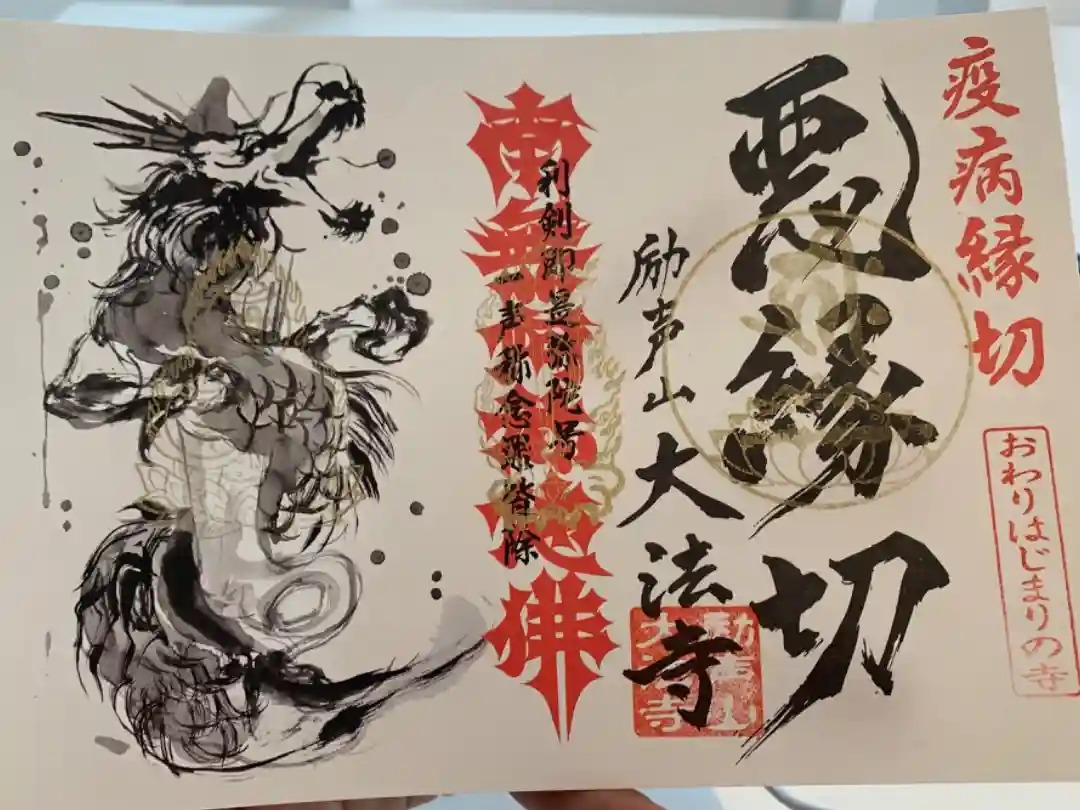 疫病縁切
おわりはじまりの寺
悪縁切
励声山 大法寺
利剣即是弥陀号
一声称念罪皆除
南無阿弥陀佛